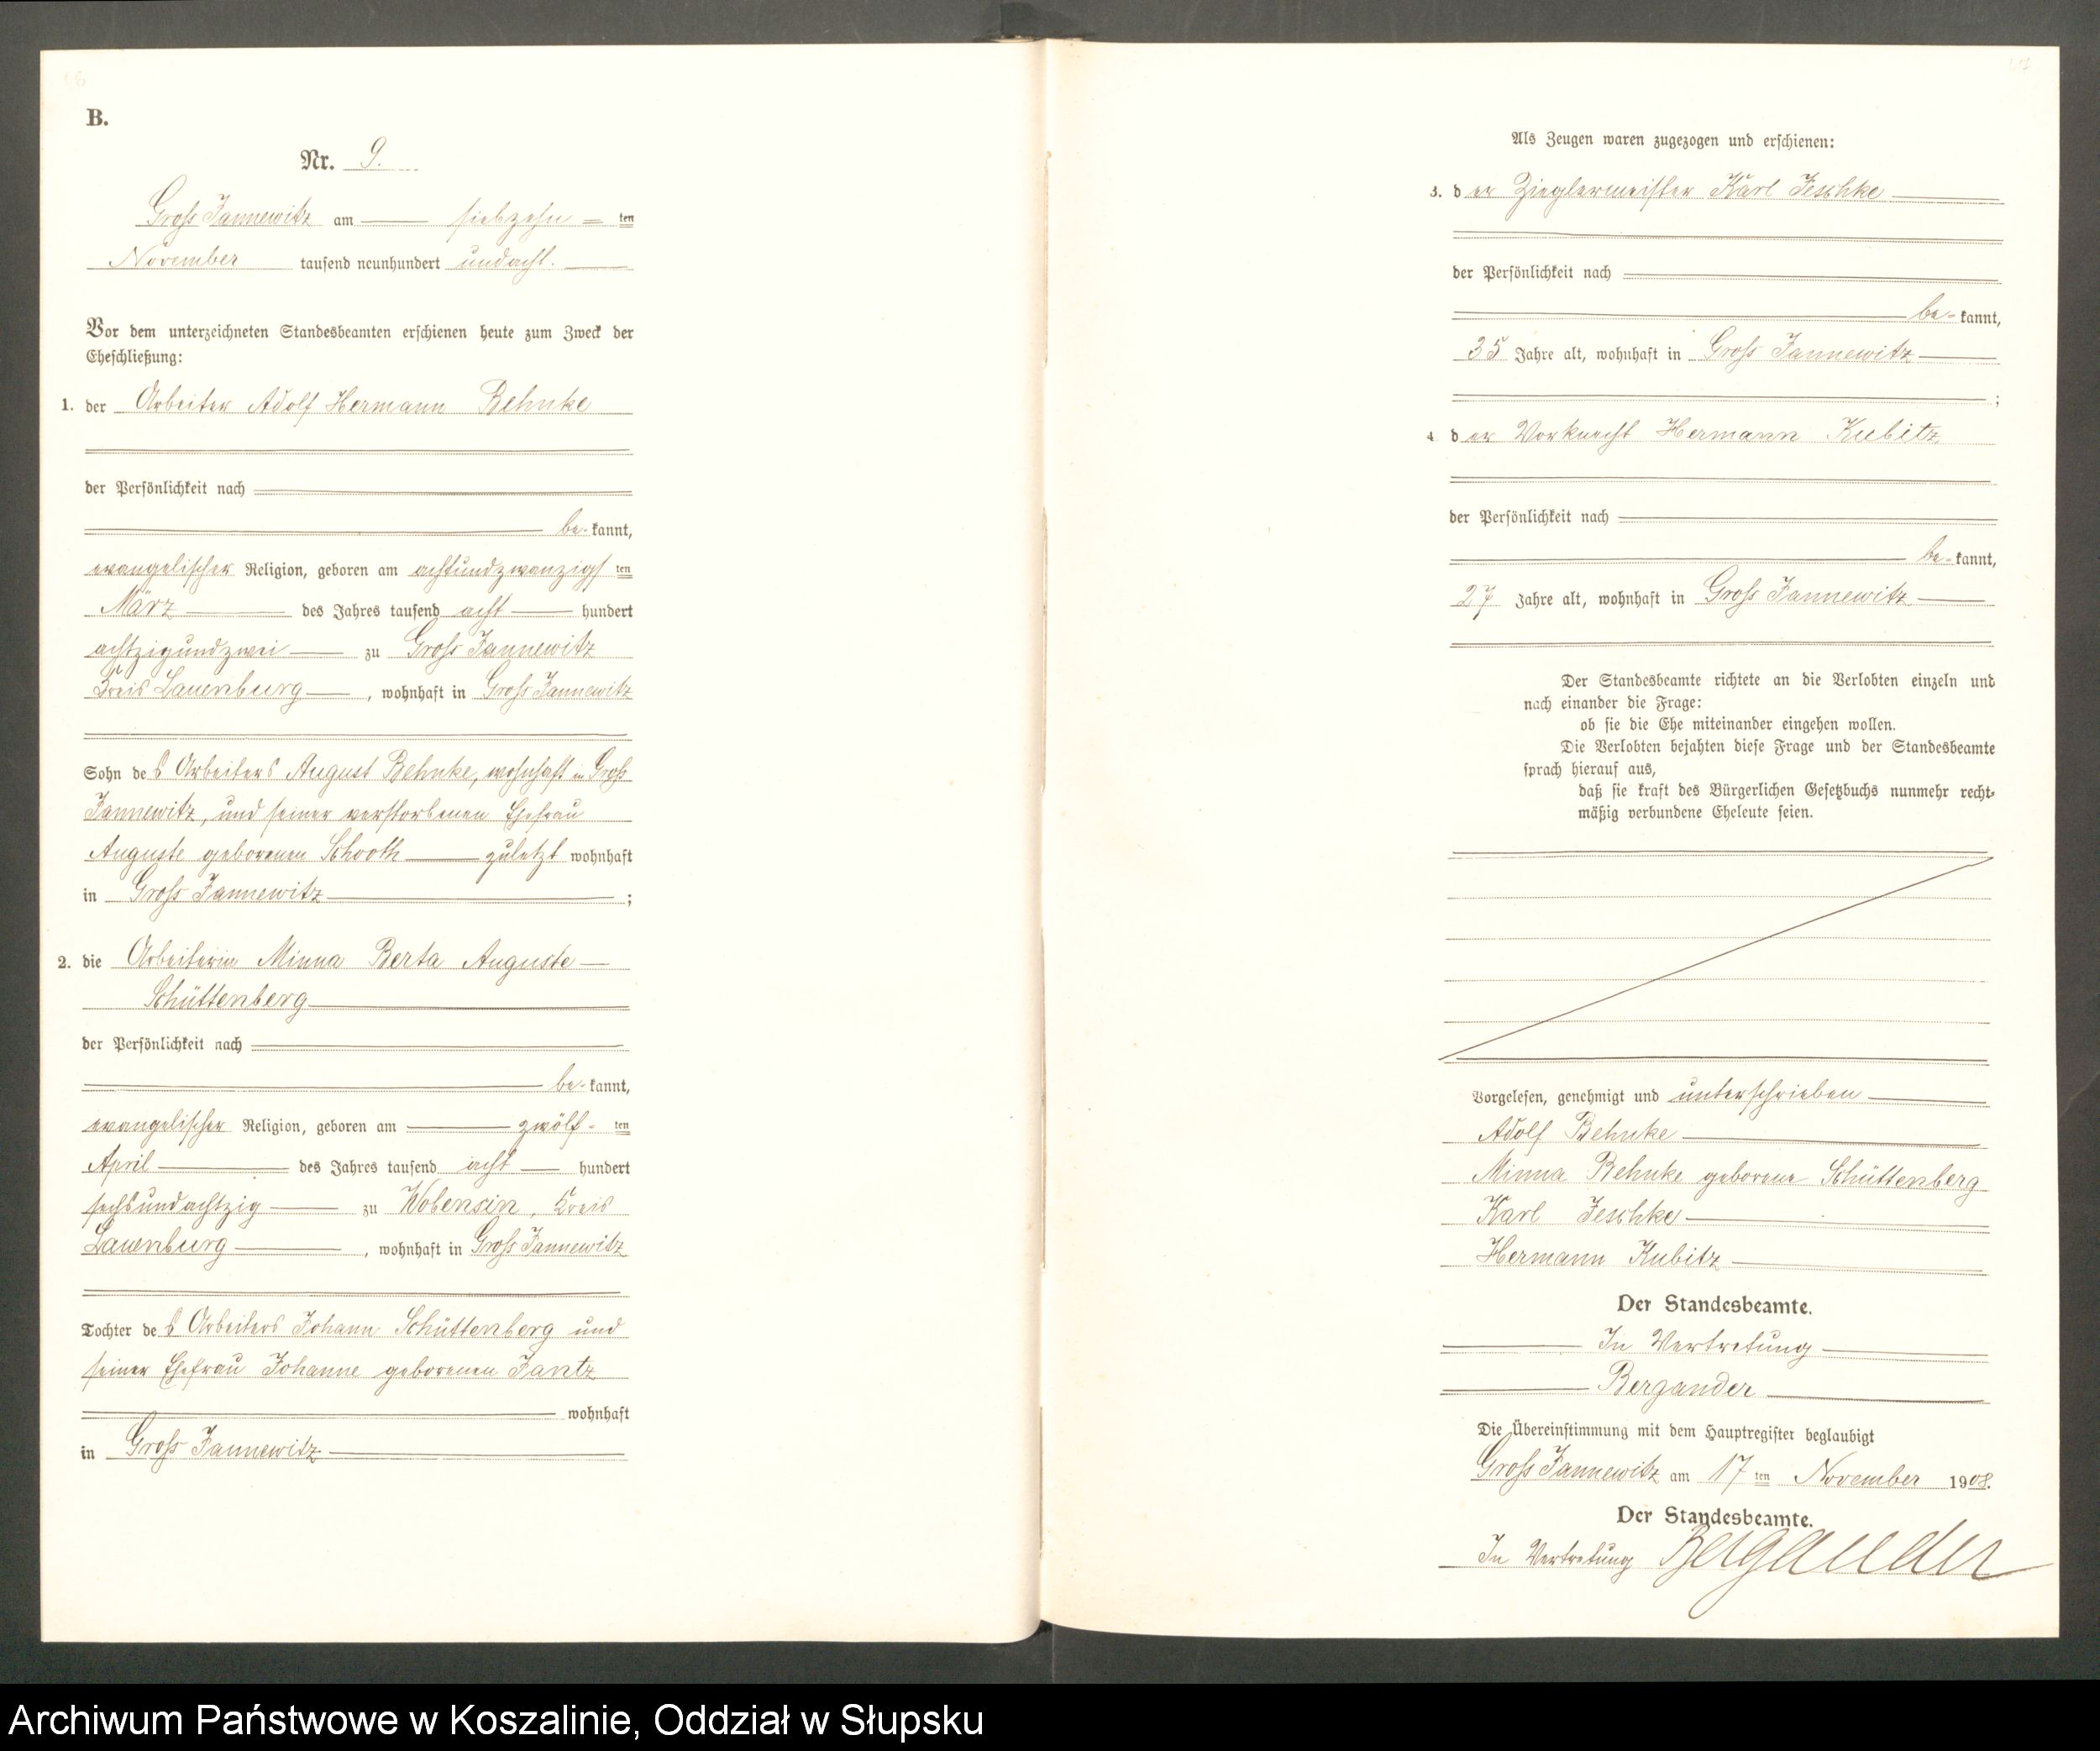 B.
Nr. 9.
Groß Jannewitz am siebzehn ten
November tausend neunhundert undacht.
Vor dem unterzeichneten Standesbeamten erschienen heute zum Zweck der
Eheschließung:
1. der Arbeiter Adolf Hermann Behnke
der Persönlichkeit nach
be-kannt,
evangelischer Religion, geboren am achtundzwanzigs ten
März des Jahres tausend acht hundert
achtzigundzwei zu Groß Jannewitz
Kreis Lauenburg, wohnhaft in Groß Jannewitz
Sohn des Arbeiters August Behnke, wohnhaft in Groß
Jannewitz, und seiner verstorbenen Ehefrau
Auguste geborenen Schooth zuletzt wohnhaft
in Groß Jannewitz;
2. die Arbeiterin Minna Berta Auguste
Schüttenberg
der Persönlichkeit nach
be-kannt,
evangelischer Religion, geboren am zwölf- ten
April des Jahres tausend acht hundert
sechsundachtzig zu Wobensin, Kreis
Lauenburg, wohnhaft in Groß Jannewitz
Tochter des Arbeiters Johann Schüttenberg und
seiner Ehefrau Johanne geborenen Jantz
wohnhaft
in Groß Jannewitz
Als Zeugen waren zugezogen und erschienen:
3. der Zieglermeister Karl Jeschke
der Persönlichkeit nach
be-kannt,
35 Jahre alt, wohnhaft in Groß Jannewitz
;
4. der Vorknecht Hermann Kubitz
der Persönlichkeit nach
be-kannt,
27 Jahre alt, wohnhaft in Groß Jannewitz
Der Standesbeamte richtete an die Verlobten einzeln und
nach einander die Frage:
ob sie die Ehe miteinander eingehen wollen.
Die Verlobten bejahten diese Frage und der Standesbeamte
sprach hierauf aus,
daß sie kraft des Bürgerlichen Gesetzbuchs nunmehr recht-
mäßig verbundene Eheleute seien.
Vorgelesen, genehmigt und unterschrieben
Adolf Behnke
Minna Behnke geborene Schüttenberg
Karl Jeschke
Hermann Kubitz
Der Standesbeamte.
In Vertretung
Bergander
Die Übereinstimmung mit dem Hauptregister beglaubigt
Groß Jannewitz am 17 ten November 1908.
Der Standesbeamte.
In Vertretung Bergander
Archiwum Państwowe w Koszalinie, Oddział w Słupsku